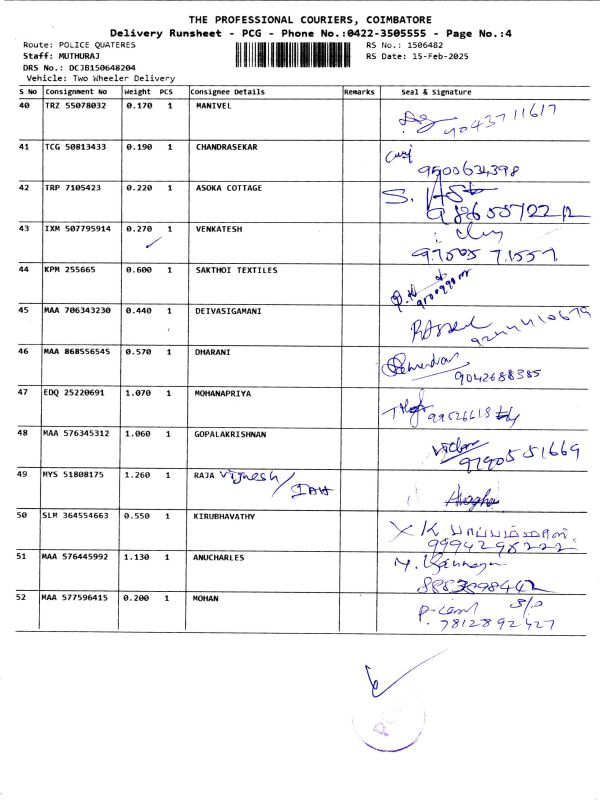 THE PROFESSIONAL COURIERS, COIMBATORE
Delivery Runsheet - PCG - Phone No.:0422-3505555 - Page No.:4
Route: POLICE QUATERES RS No.: 1506482
Staff: MUTHURAJ RS Date: 15-Feb-2025
DRS No.: DCJB150648204
Vehicle: Two Wheeler Delivery
S No Consignment No Weight PCS Consignee Details Remarks Seal & Signature
40 TRZ 55078032 0.170 1 MANIVEL
9043711617
41 TCG 50813433 0.190 1 CHANDRASEKAR
9500634398
42 TRP 7105423 0.220 1 ASOKA COTTAGE
S.
43 IXM 507795914 0.270 1 VENKATESH
97505 71557
44 KPM 255665 0.600 1 SAKTHOI TEXTILES
45 MAA 706343230 0.440 1 DEIVASIGAMANI
46 MAA 868556545 0.570 1 DHARANI
9042688385
47 EDQ 25220691 1.070 1 MOHANAPRIYA
48 MAA 576345312 1.060 1 GOPALAKRISHNAN
9790551669
49 MYS 51808175 1.260 1 RAJA Vignesh /
50 SLM 364554663 0.550 1 KIRUBHAVATHY
X K
9994298222
51 MAA 576445992 1.130 1 ANUCHARLES
8883098442
52 MAA 577596415 0.200 1 MOHAN
7812892427